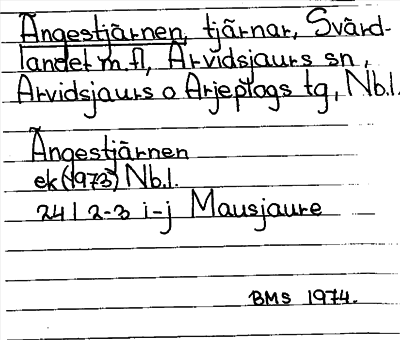 Ängestjärnen, tjärnar, Svärd-
landet m.fl, Arvidsjaurs sn,
Arvidsjaurs o Arjeplogs tg, Nb.l.
Ängestjärnen
ek (1973) Nb.l.
24 I 2-3 i-j Mausjaure
BMS 1974.